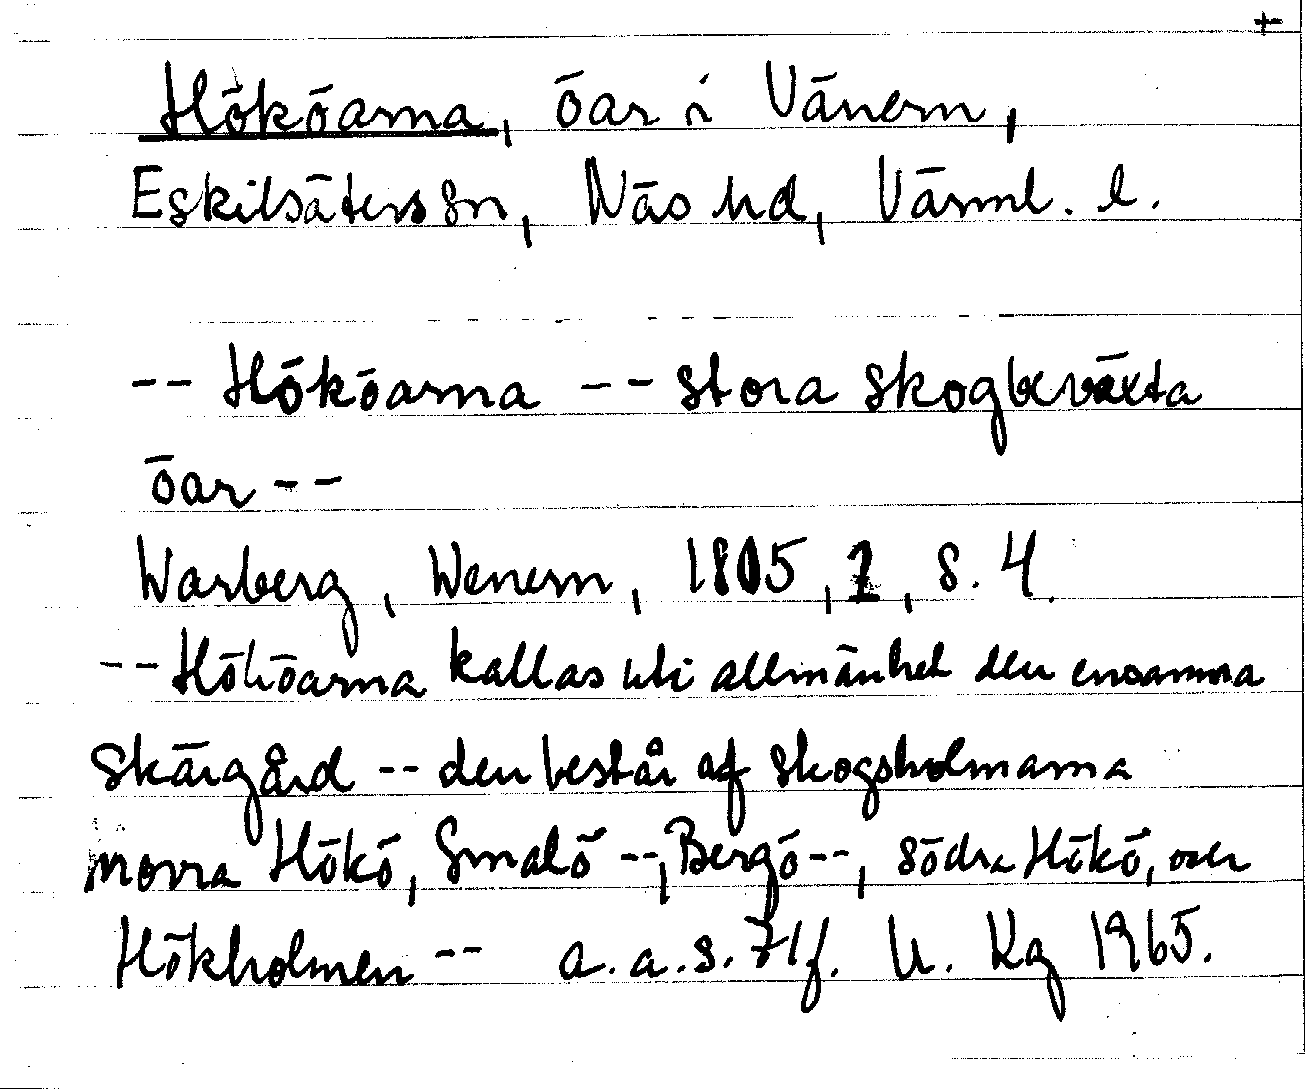 +
Hököarna, öar i Vänern,
Eskilsäters sn, Näs hd, Värml. l.
-- Hököarna -- stora skogbeväxta
öar --
Warberg, Wenern, 1805, 1, s. 4.
-- Hököarna kallas uti allmänhet den ensamma
Skärgård -- den består af skogsholmarna
norra Hökö, Smalö --, Bergö --, södra Hökö,
Hökholmen -- a.a.s. 71f. U. Kg 1965.